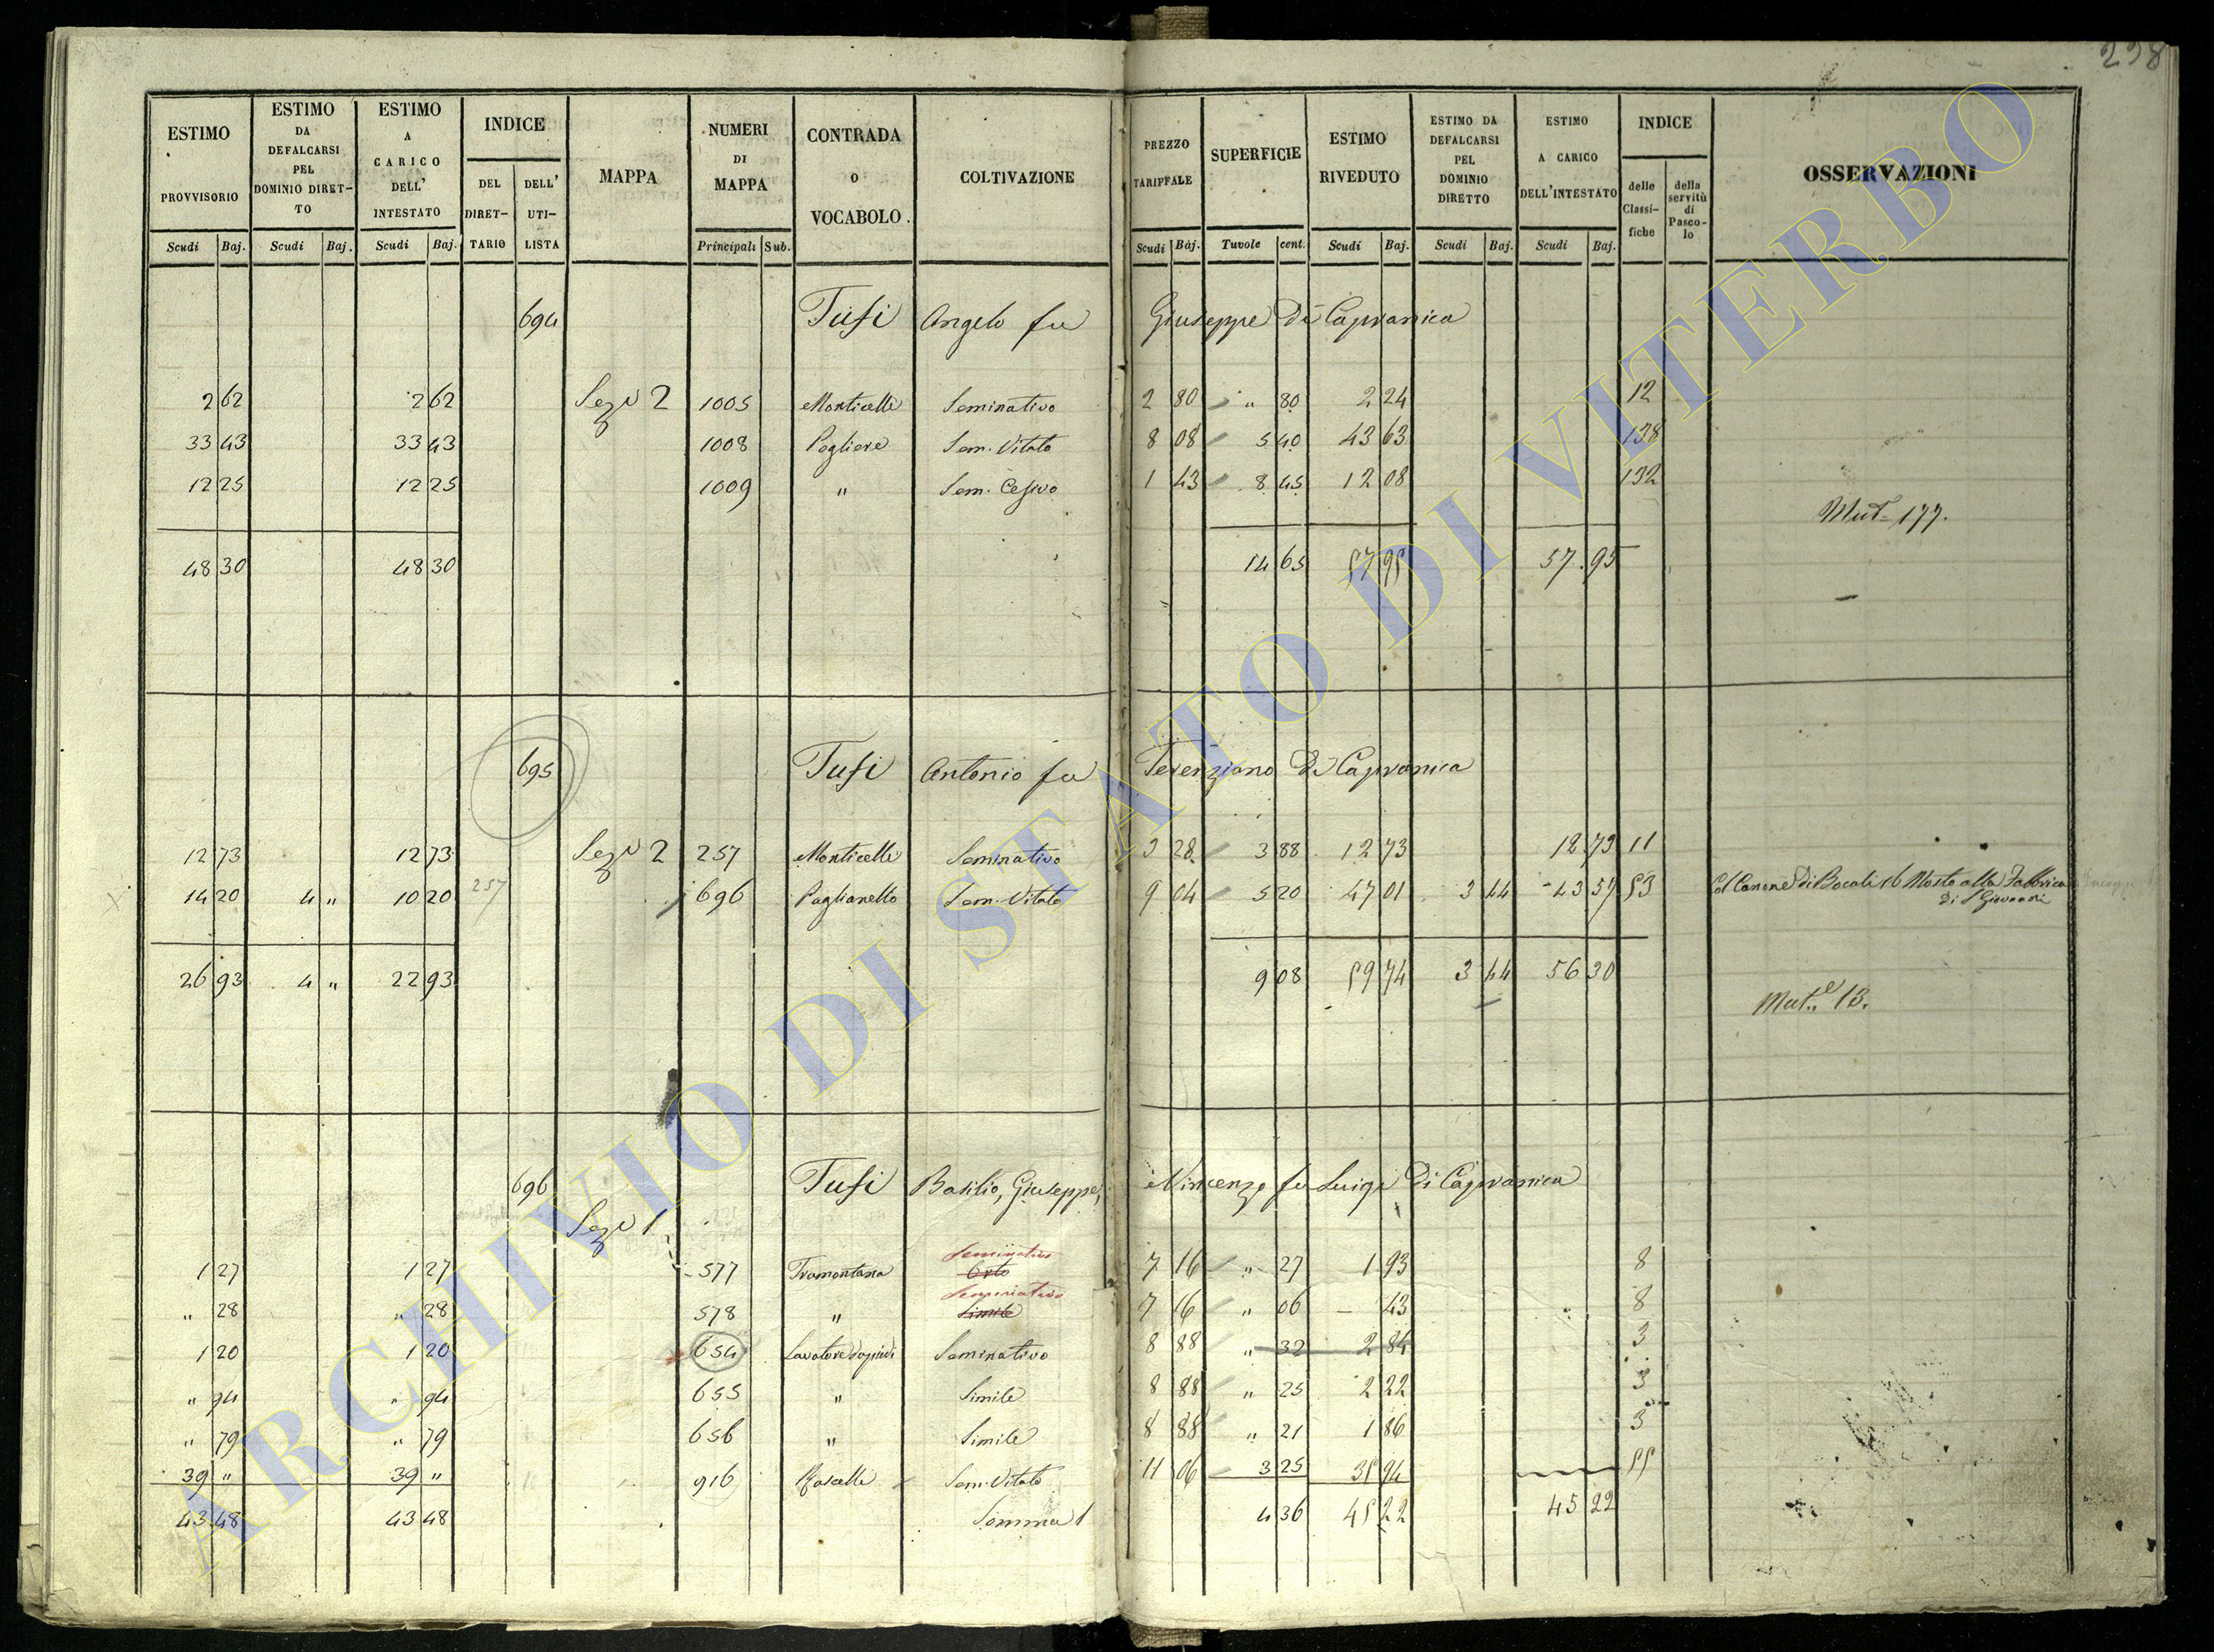 238
ESTIMO PROVVISORIO Scudi Baj.
ESTIMO DA DEFALCARSI PEL DOMINIO DIRET-TO Scudi Baj.
ESTIMO A CARICO DELL' INTESTATO Scudi Baj.
INDICE DEL DIRET-TARIO DELL' UTI-LISTA
MAPPA
NUMERI DI MAPPA Principali Sub.
CONTRADA O VOCABOLO.
COLTIVAZIONE
PREZZO TARIFFALE Scudi Baj.
SUPERFICIE Tavole cent.
ESTIMO RIVEDUTO Scudi Baj.
ESTIMO DA DEFALCARSI PEL DOMINIO DIRETTO Scudi Baj.
ESTIMO A CARICO DELL'INTESTATO Scudi Baj.
INDICE delle Classi-fiche della servitù di Pasco-lo
OSSERVAZIONI
694 Tusi Angelo fu Giuseppe Di Capranica
2 62 2 62 Sez 2 1005 Monticelli Seminativo 2 80 " 80 2 24 12
33 43 33 43 1008 Pogliere Sem. Vitato 8 08 5 40 43 63 138
12 25 12 25 1009 " Sem. Cesivo 1 43 8 45 12 08 132
Mut. 177.
48 30 48 30 14 65 57 95 57.95
695 Tusi Antonio fu Terenziano Di Capranica
12 73 12 73 Sez 2 257 Monticelli Seminativo 3 28 3 88 12 73 12 73 11
14 20 4 " 10 20 257 696 Paglianello Sem. Vitato 9 04 5 20 47 01 3 44 43 57 53 Col Canone di Bocali 16 Mosto alla Fabbrica
di S Giovanni
26 93 4 " 22 93 9 08 59 74 3 44 56 30
Mut. 13.
696 Tusi Basilio, Giuseppe, Vincenzo fu Luigi Di Capranica
Sez 1
Seminativo
1 27 1 27 577 Tramontana Orto 7 16 " 27 1 93 8
Seminativo
" 28 " 28 578 " Simile 7 16 " 06 – 43 8
1 20 1 20 654 Seminativo 8 88 " 32 2 84 3
" 94 " 94 655 " Simile 8 88 " 25 2 22 3
" 79 " 79 656 " Simile 8 88 " 21 1 86 3
39 " 39 " 916 Roscelli Sem. Vitato 11 06 3 25 35 94 55
43 48 43 48 Somma 1 4 36 45 22 45 22
ARCHIVIO DI STATO DI VITERBO